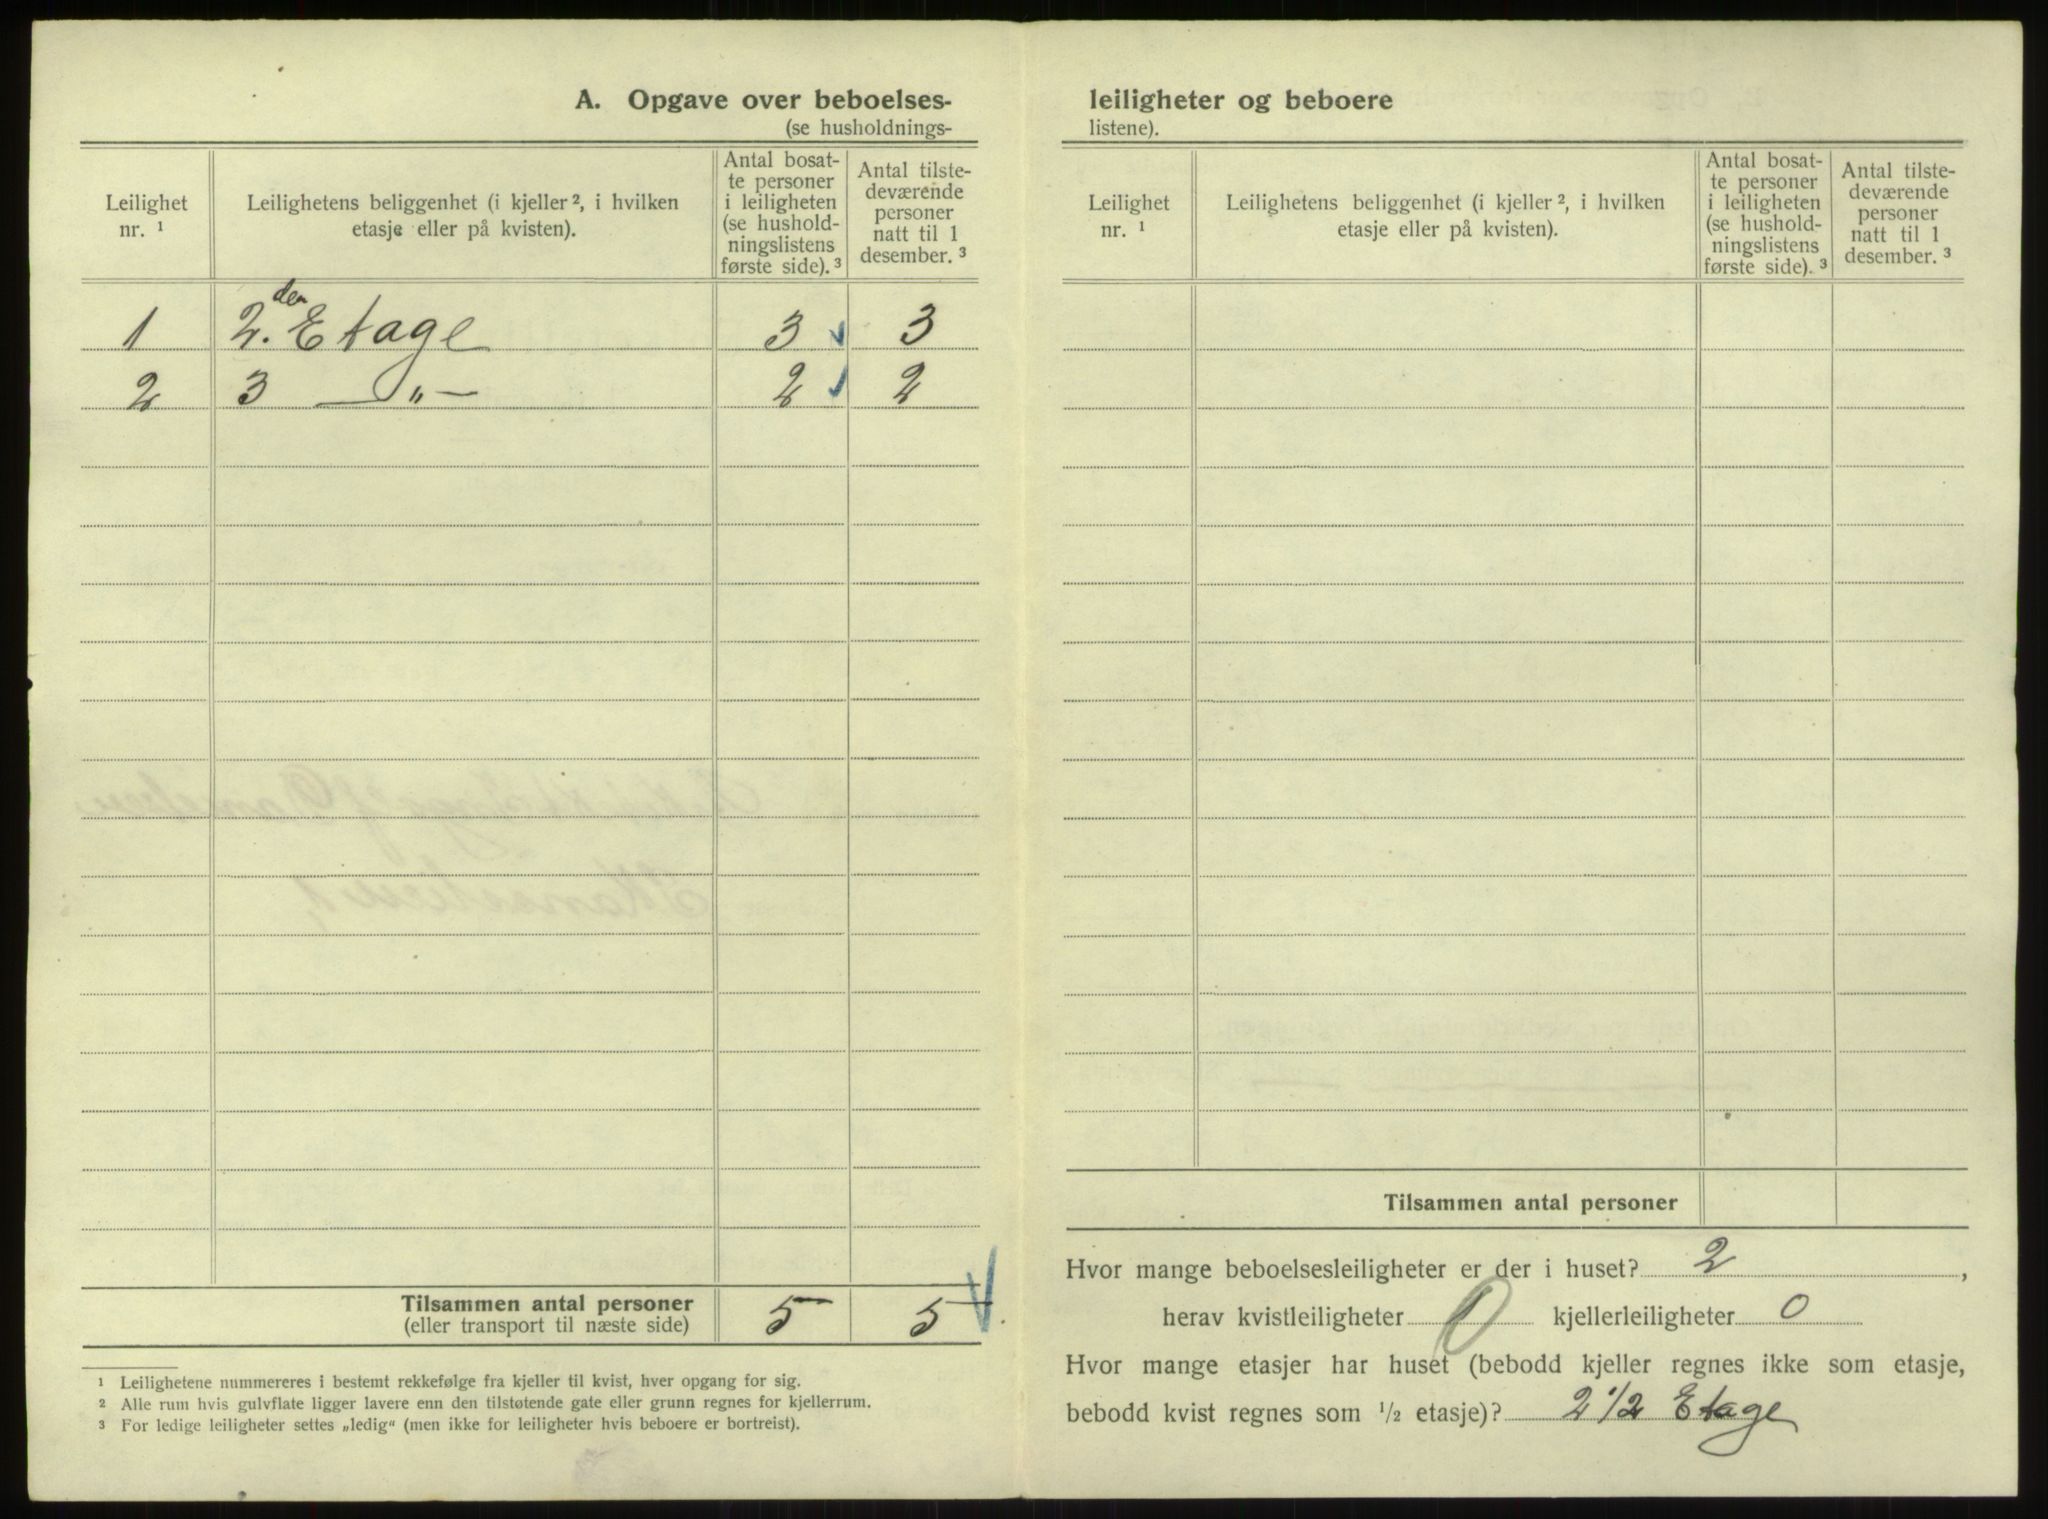 A. Opgave over beboelses-
(se husholdnings-
Leilighet nr. ¹
Leilighetens beliggenhet (i kjeller ², i hvilken
etasje eller på kvisten).
Antal bosat-
te personer
i leiligheten
(se hushold-
ningslistens
første side). ³
Antal tilste-
deværende
personer
natt til 1
desember. ³
1 2.den Etage 3 3
2 3 — „ — 2 2
Tilsammen antal personer 5 5
(eller transport til næste side)
¹ Leilighetene nummereres i bestemt rekkefølge fra kjeller til kvist, hver opgang for sig.
² Alle rum hvis gulvflate ligger lavere enn den tilstøtende gate eller grunn regnes for kjellerrum.
³ For ledige leiligheter settes „ledig“ (men ikke for leiligheter hvis beboere er bortreist).
leiligheter og beboere
listene).
Leilighet
nr. ¹
Leilighetens beliggenhet (i kjeller ², i hvilken
etasje eller på kvisten).
Antal bosat-
te personer
i leiligheten
(se hushold-
ningslistens
første side). ³
Antal tilste-
deværende
personer
natt til 1
desember. ³
Tilsammen antal personer
Hvor mange beboelsesleiligheter er der i huset? 2,
herav kvistleiligheter 0 kjellerleiligheter 0
Hvor mange etasjer har huset (bebodd kjeller regnes ikke som etasje,
bebodd kvist regnes som ¹/₂ etasje)? 2 1/2 Etage